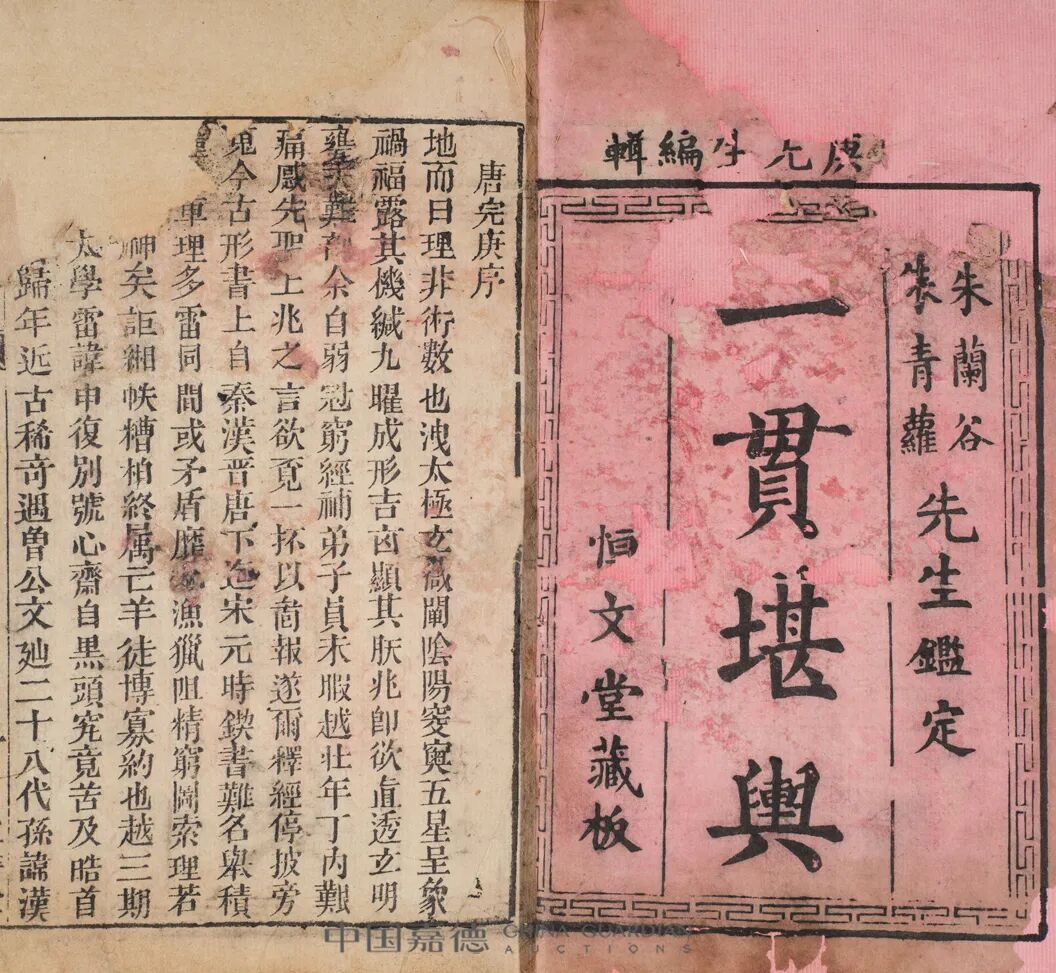 生編輯
朱蘭谷
朱青蘿
先生鑑定
一貫堪輿
恒文堂藏板
唐完庚序
地而曰理非術數也洩太極玄微闡陰陽窔奧五星呈象
禍福露其機緘九曜成形吉凶顯其朕兆卽欲直透玄明
難余自弱冠窮經補弟子員未暇越壯年丁内艱
痛感先聖上兆之言欲覓一抔以啚報遂爾釋經停披旁
覓今古形書上自秦漢晉唐下迄宋元時鍥書難名積
理多雷同間或矛盾靡漁獵阻精窮圖索理若
矣詎緗帙糟柏終属亡羊徒博寡約也越三期
太學雷諱申復別號心齋自黒頭究竟苦及皓首
歸年近古稀竒遇曾公文辿二十八代孫諱漢
中国嘉德
CHINA GUARDIAN
AUCTIONS